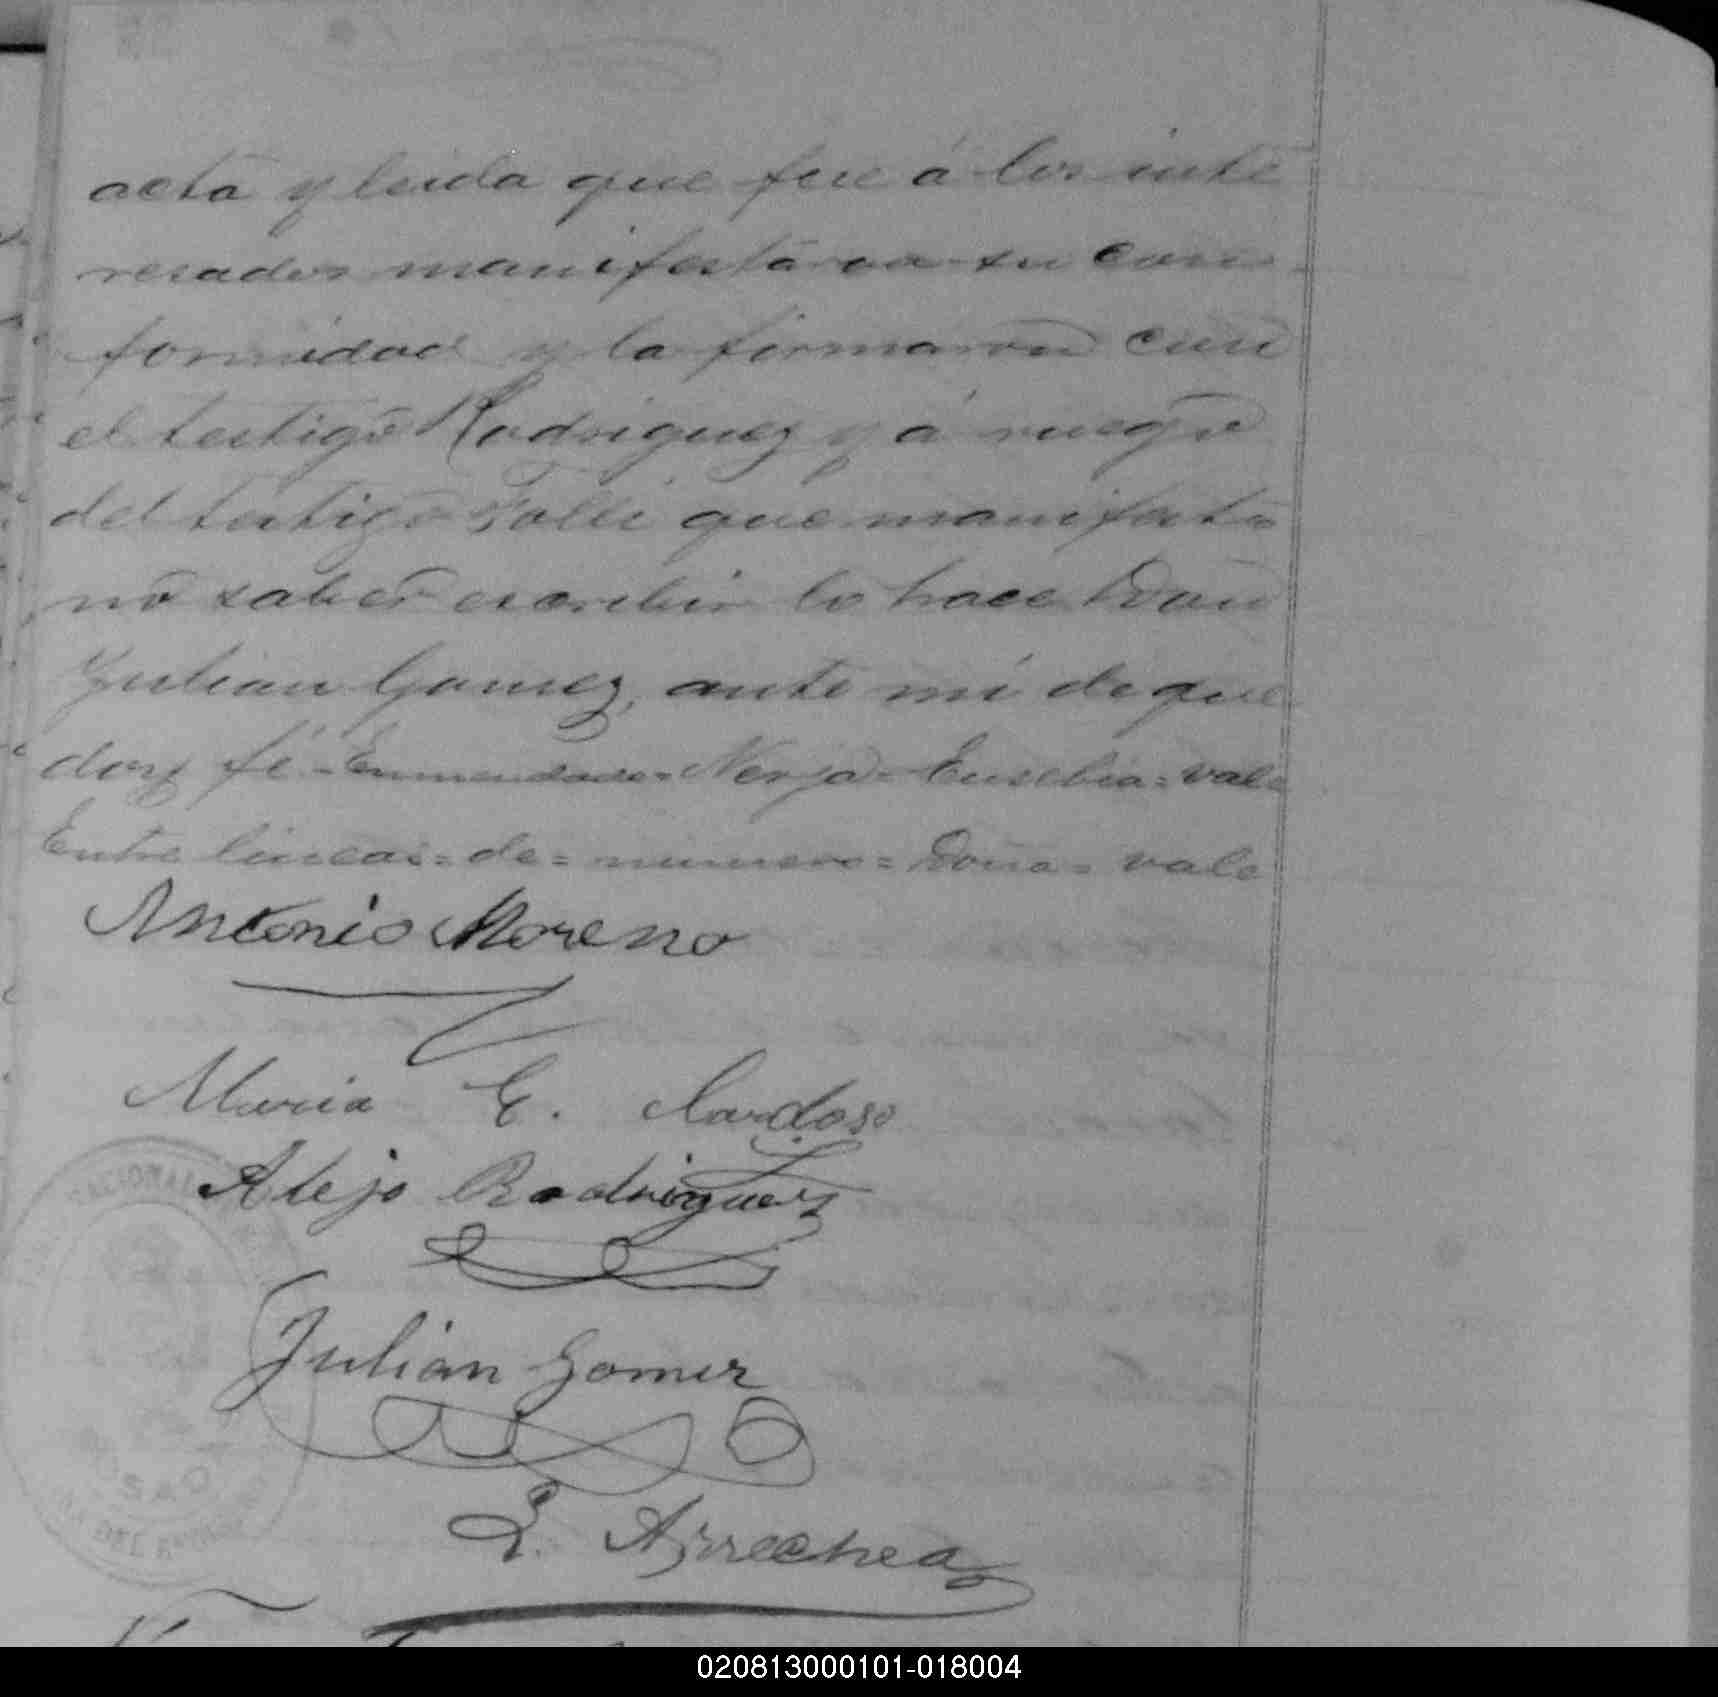 acta y leida que fue á los inte
resados manifestaron su con
formidad y la firmaron con
el testigo Rodriguez y á ruego
del testigo Folli que manifesto
no saber escribir lo hace Don
Julian Gomez, ante mí de que
doy fé - Enmendado = Nerja = Eusebia = vale
Entre lineas = de = numero = Doña = vale
Antonio Moreno
Maria E. Cardoso
Alejo Rodriguez
Julián Gomez
L. Arrechea
020813000101-018004